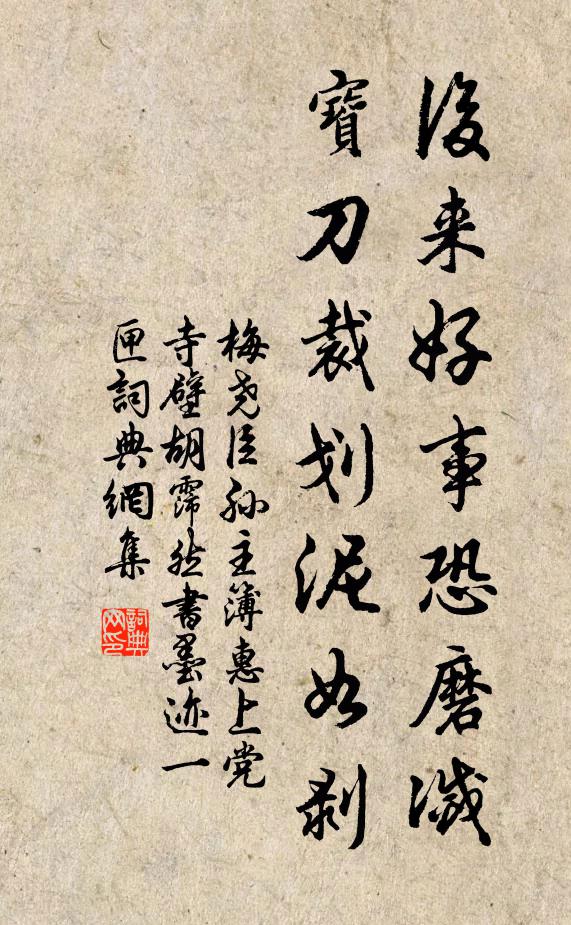 後来好事恐磨滅
寶刀裁划泥如剥
梅尧臣孙主簿惠上党
寺壁胡霈然書墨迹一
匣詞典網集
詞典
网印